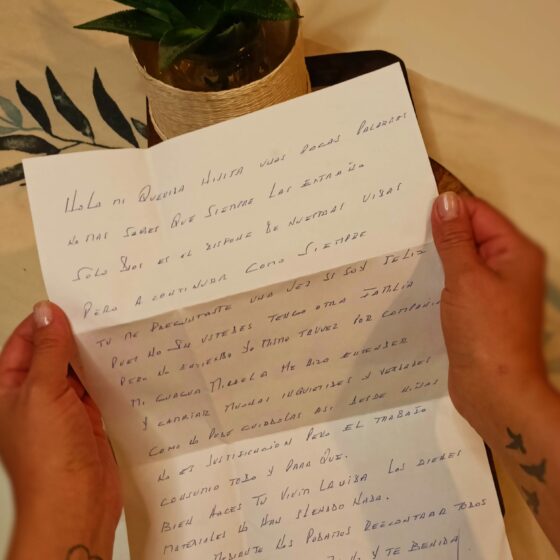 HOLA MI QUERIDA HIJITA UNAS POCAS PALABRAS
NO MAS SABES QUE SIEMPRE LAS EXTRAÑO
SOLO DIOS ES EL DISPONE DE NUESTRAS VIDAS
PERO A CONTINUAR COMO SIEMPRE
TU ME PREGUNTASTE UNA VES SI SOY FELIZ
PUES NO SIN USTEDES TENGO OTRA FAMILIA
PERO NO ENTIENDO YO MISMO TALVEZ POR COMPAÑIA
MI GUAGUA ME BIZO ENTENDER
Y CAMBIAR MUCHAS INQUIETUDES Y VERDADES
COMO NO PUDE CUIDARLAS ASI DESDE NIÑAS
NO ES JUSTIFICACION PERO EL TRABAJO
CONSUMIO TODO Y PARA QUE.
BIEN HACES TU VIVIR LA VIDA LOS BIENES
MATERIALES NO HAN LLENADO NADA.
NOS PODAMOS ENCONTRAR TODOS
Y TE BENDIGA